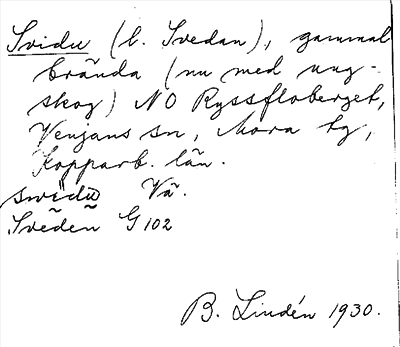 Svidu (l. Svedan), gammal
brända (nu med ung-
skog) NO Ryssfloberget,
Venjans sn, Mora tg,
Kopparb. län.
swidu Vä.
Sveden G 102
B. Lindén 1930.